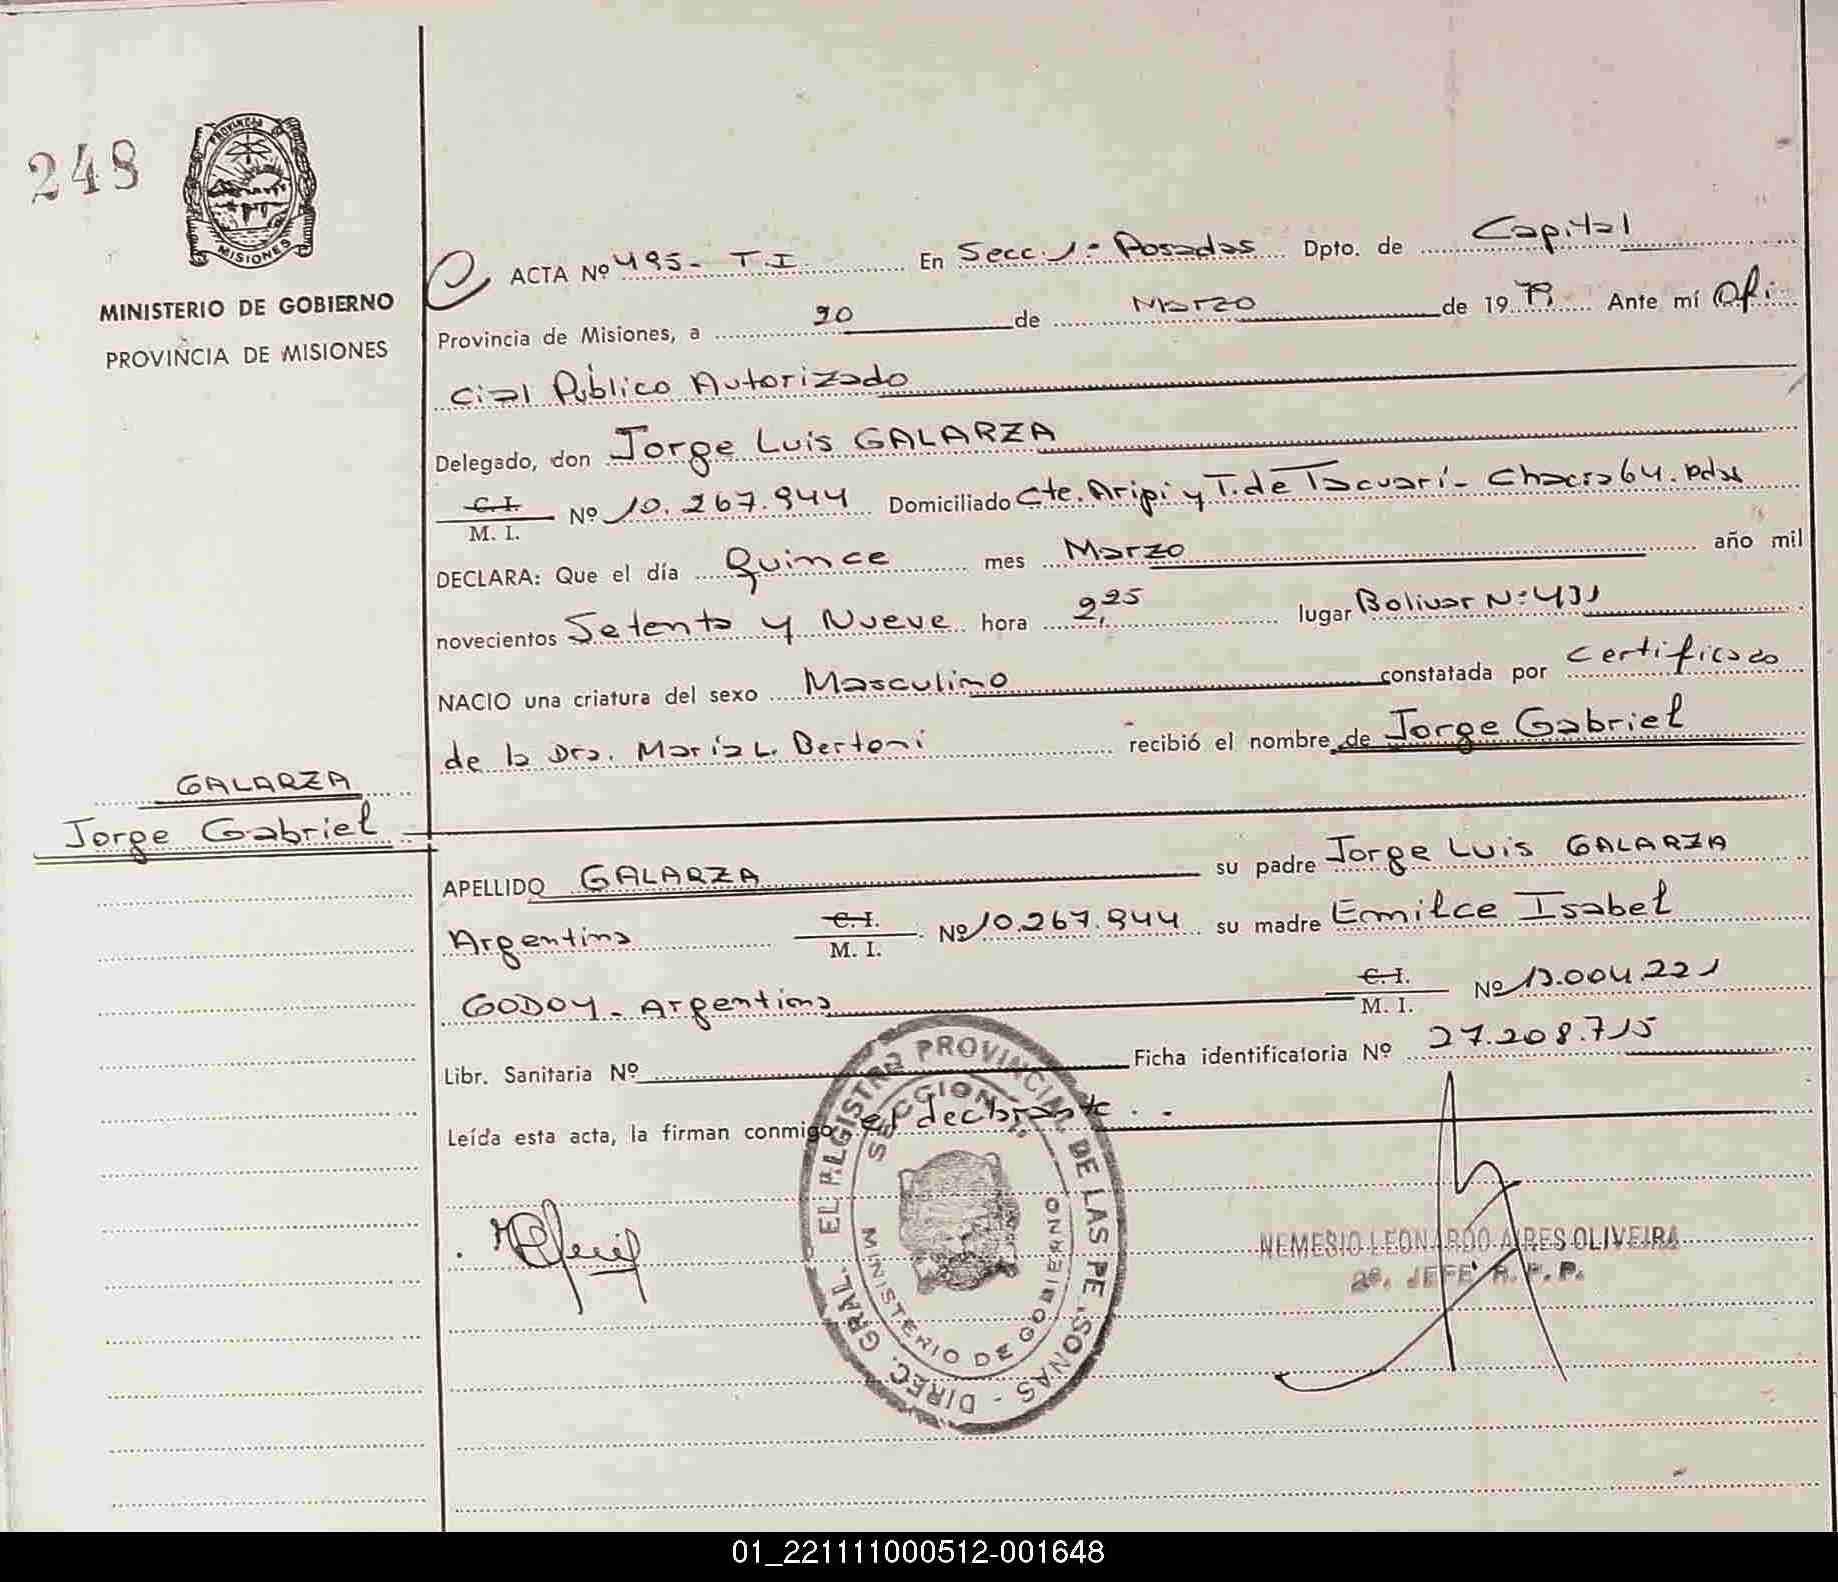 248
PROVINCIA DE
MISIONES
MINISTERIO DE GOBIERNO
PROVINCIA DE MISIONES
GALARZA
Jorge Gabriel
ACTA Nº 495- T.I En Secc. 1º Posadas Dpto. de Capital
Provincia de Misiones, a 20 de Marzo de 1979 Ante mí Ofi
cial Público Autorizado
Delegado, don Jorge Luis GALARZA
C.I. M. I. Nº 10.267.944 Domiciliado Cte. Aripi y T. de Tacuarí - Chacra 64. Pdas
DECLARA: Que el día Quince mes Marzo año mil
novecientos Setenta y Nueve hora 2,25 lugar Bolivar Nº 431
NACIO una criatura del sexo Masculino constatada por Certificado
de la Dra. María L. Bertoni recibió el nombre de Jorge Gabriel
APELLIDO GALARZA su padre Jorge Luis GALARZA
Argentino C.I. M. I. Nº 10.267.944 su madre Emilce Isabel
GODOY - Argentina C.I. M. I. Nº 13.004.221
Libr. Sanitaria Nº Ficha identificatoria Nº 27.208.715
Leída esta acta, la firman conmigo el declarante . -
DIREC. GRAL. DEL REGISTRO PROVINCIAL DE LAS PERSONAS -
SECCION 1º
MINISTERIO DE GOBIERNO
NEMESIO LEONARDO AIRES OLIVEIRA
2º. JEFE R. P. P.
01_221111000512-001648